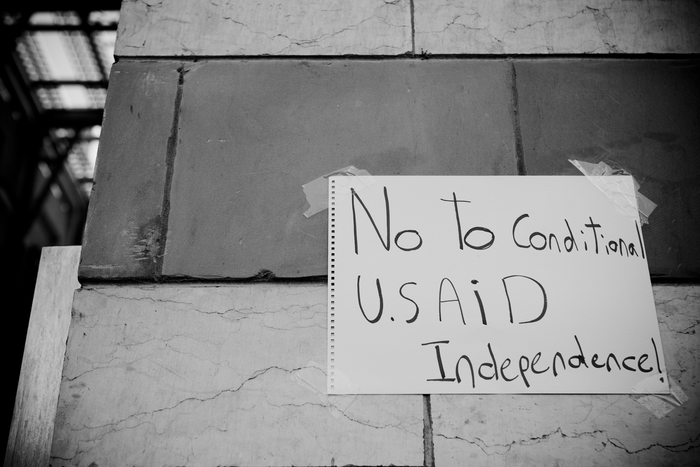 No To Conditional
U.SAiD
Independence!